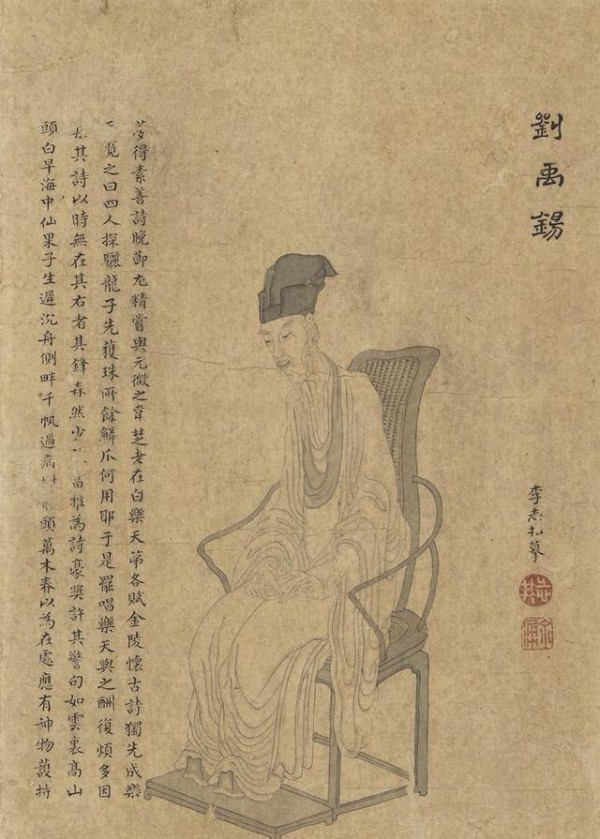 劉禹錫
李志摹
夢得素善詩晚節尤精嘗與元微之韋楚老在白樂天第各賦金陵懷古詩獨先成樂
覽之曰四人探驪龍子先獲珠所餘鱗爪何用耶于是罷唱樂天與之酬復頗多因
其詩以時無在其右者其鋒森然少當推為詩豪獎許其警句如雲裏高山
頭白早海中仙果子生遲沉舟側畔千帆過病頭萬木春以為在處應有神物護持